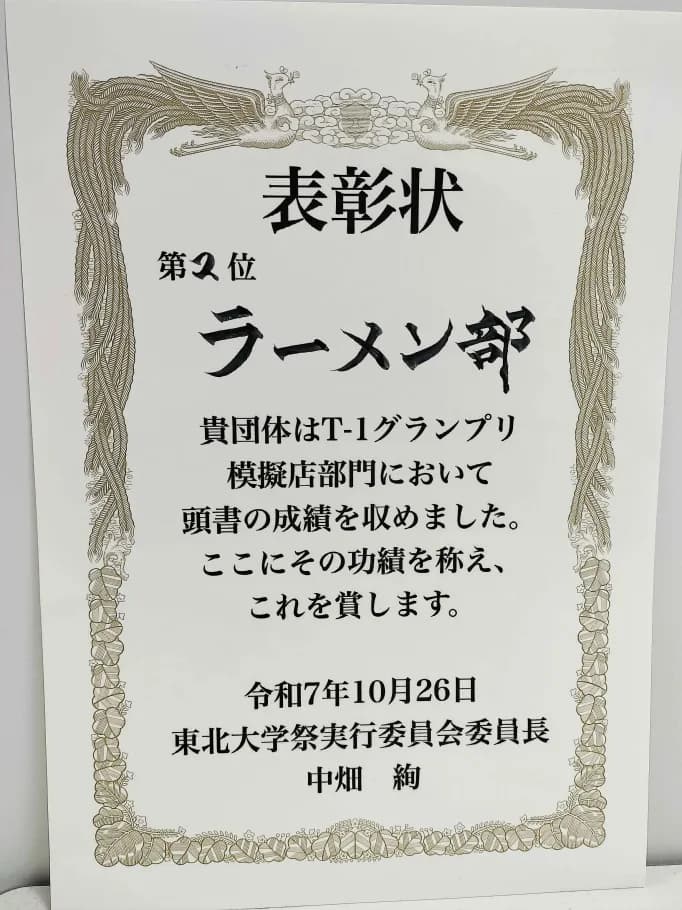 表彰状
第2位
ラーメン部
貴団体はT-1グランプリ
模擬店部門において
頭書の成績を収めました。
ここにその功績を称え、
これを賞します。
令和7年10月26日
東北大学祭実行委員会委員長
中畑　絢